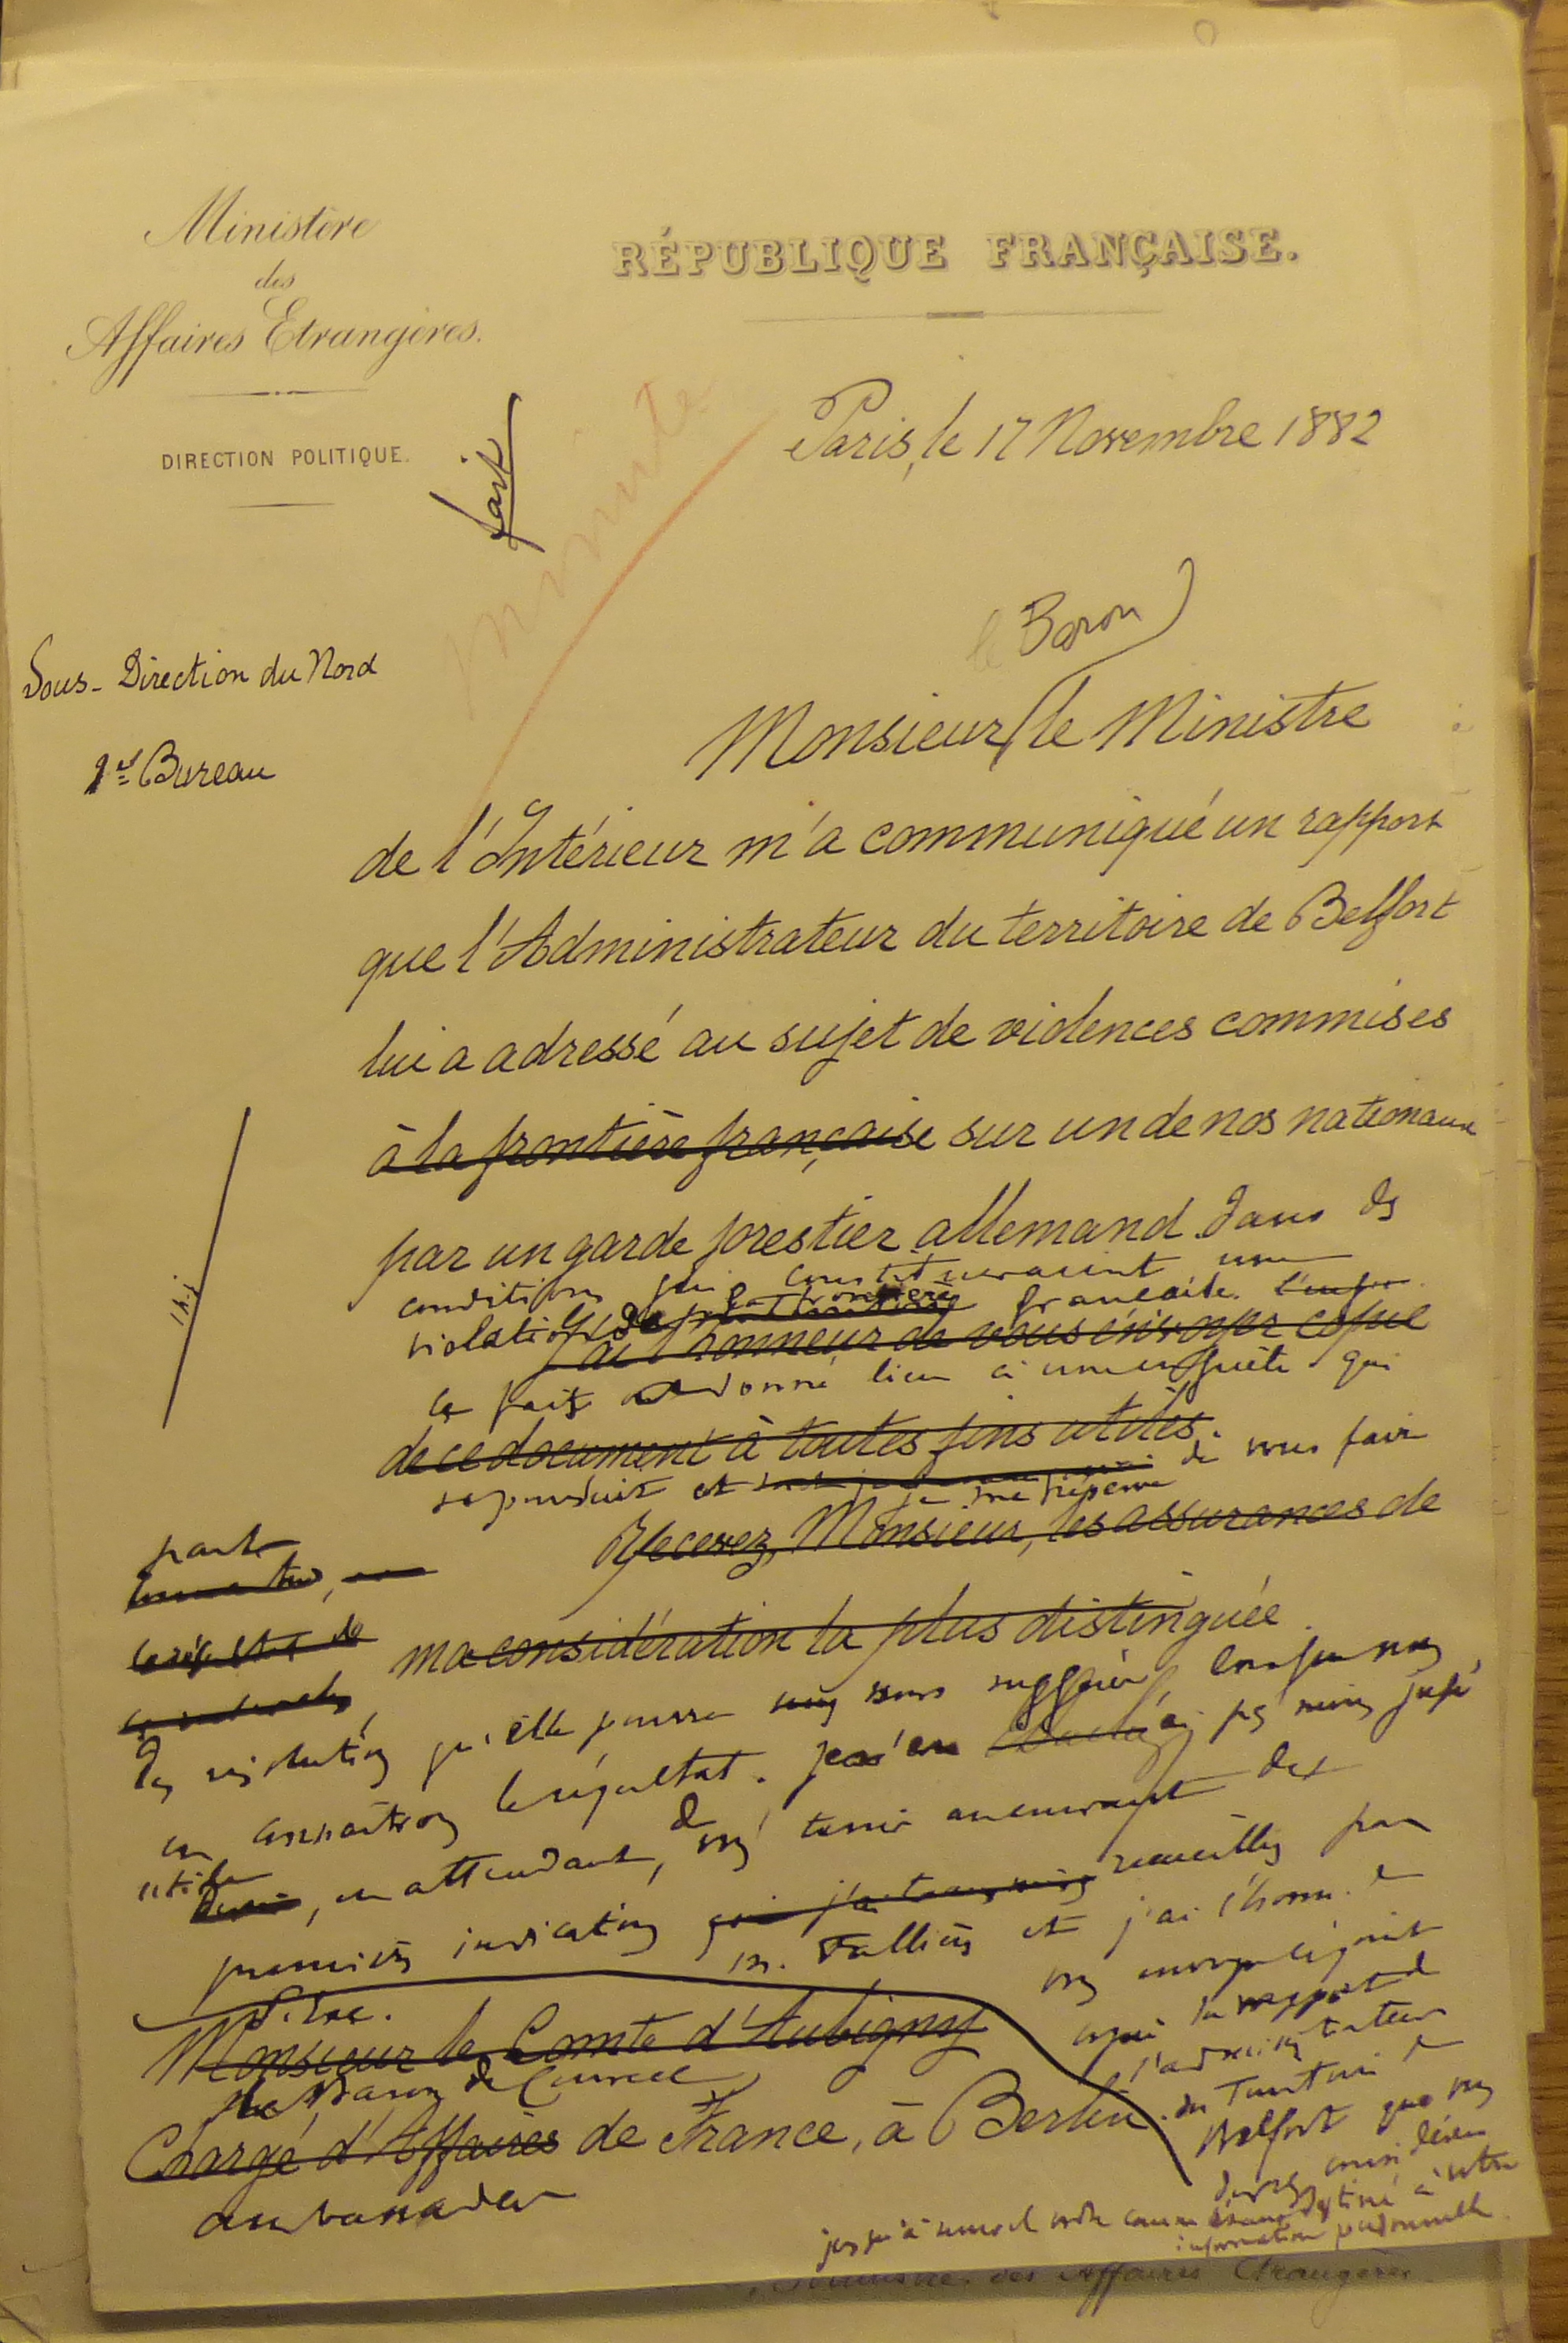 Ministère
des
Affaires Etrangères.
DIRECTION POLITIQUE.
RÉPUBLIQUE FRANÇAISE.
fait
minute
Paris, le 17 Novembre 1882
Sous-Direction du Nord
1er Bureau
le Baron
Monsieur le Ministre
de l'Intérieur m'a communiqué un rapport
que l'Administrateur du territoire de Belfort
lui a adressé au sujet de violences commises
à la frontière française sur un de nos nationaux
par un garde forestier allemand dans des
conditions qui constitueraient une
violation de la frontière française.
J'ai l'honneur de vous envoyer copie
Ce fait a donné lieu à une enquête qui
de ce document à toutes fins utiles.
se poursuit et je me réserve de vous faire
Recevez, Monsieur, les assurances de
part
ma considération la plus distinguée.
des résolutions qu'elle pourra nous suggérer lorsque nous
en connaîtrons le résultat. J'ai jugé
utile, en attendant, de vous tenir au courant des
premières indications recueillies par
M. Fallières et j'ai l'honn. de
vous envoyer ci-joint
copie du rapport de
l'administrateur
du Territoire de
Belfort que vous
devrez considérer
jusqu'à nouvel ordre comme étant destiné à votre
information personnelle.
Monsieur le Comte d'Aubigny
le Baron de Courcel
Chargé d'Affaires de France, à Berlin.
ambassadeur
des Affaires Etrangères